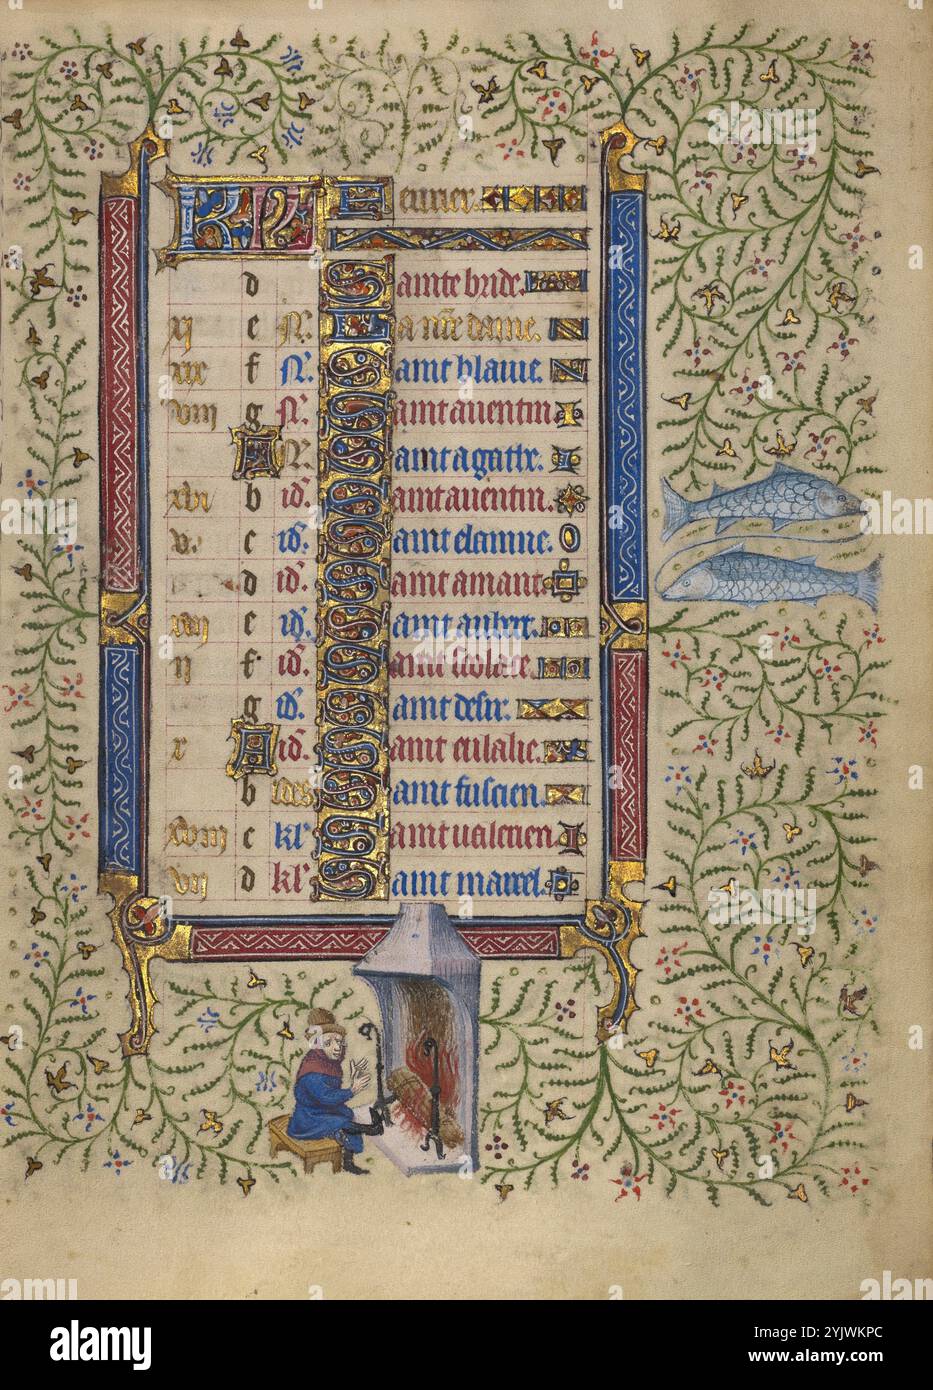 KL Feurier.
d Sainte bride.
xi e N. La nr̃e dame.
xix f N. Saint blaiue.
viii g N. Saint auentin
A N. Saint agathe.
xvi b id. Saint auentin.
v. c id. Saint elainne.
d id. Saint amant
xiii e id. Saint aubert.
ii f. id. Saint scolace.
g id. Saint desir.
x A id. Saint eulalie.
b ides Saint fuscien.
xviii c kl. Saint ualerien.
vii d kl. Saint marcel.
alamy
Image ID: 2YJWKPC
www.alamy.com